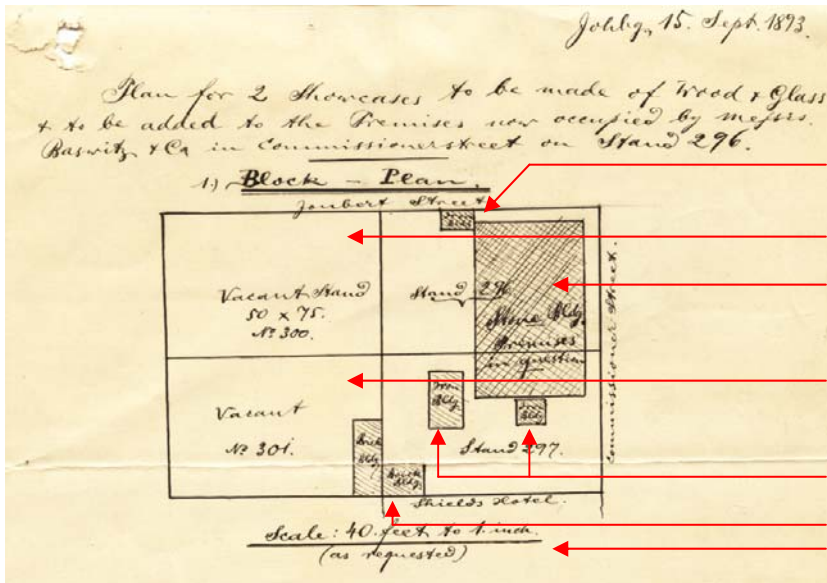 Johbg, 15. Sept. 1893.
Plan for 2 Showcases to be made of Wood & Glass
& to be added to the Premises now occupied by messrs.
Baswitz & Co in Commissionerstreet on Stand 296.
1.) Block – Plan.
Joubert Street
Vacant Stand
50 x 75.
No 300.
Stand 296
Stone Bldg.
Premises
in question
Commissioner Street.
Vacant
No 301.
Iron
Bldg
Iron
Bldg
Brick
Bldg.
Stand 297.
Brick
Bldg.
Shields Hotel.
Scale: 40 feet to 1 inch.
(as requested)